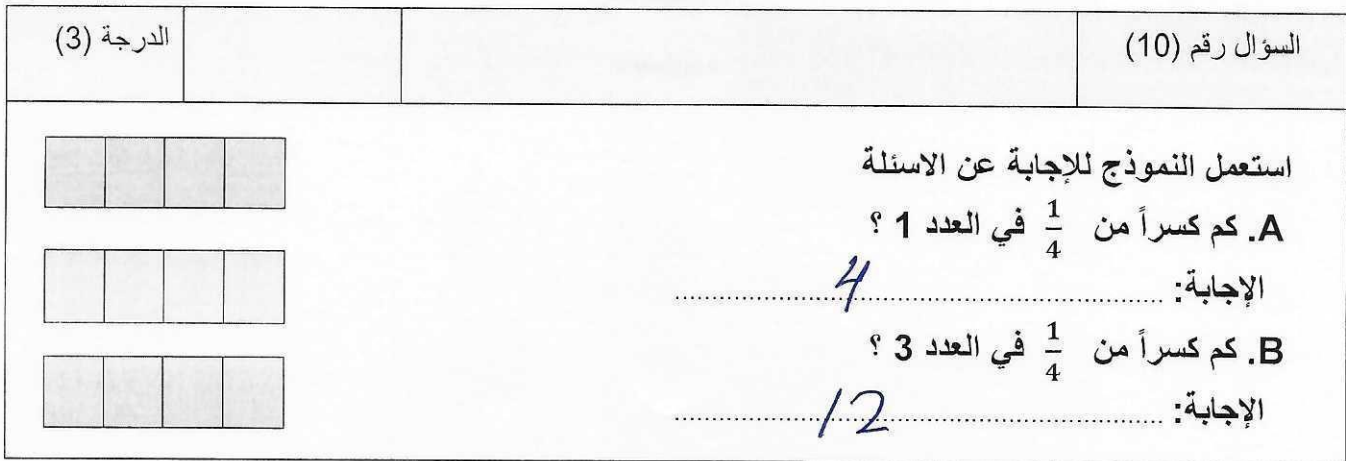 السؤال رقم (10)
الدرجة (3)
استعمل النموذج للإجابة عن الاسئلة
A. كم كسراً من 1/4 في العدد 1 ؟
الإجابة: 4
B. كم كسراً من 1/4 في العدد 3 ؟
الإجابة: 12